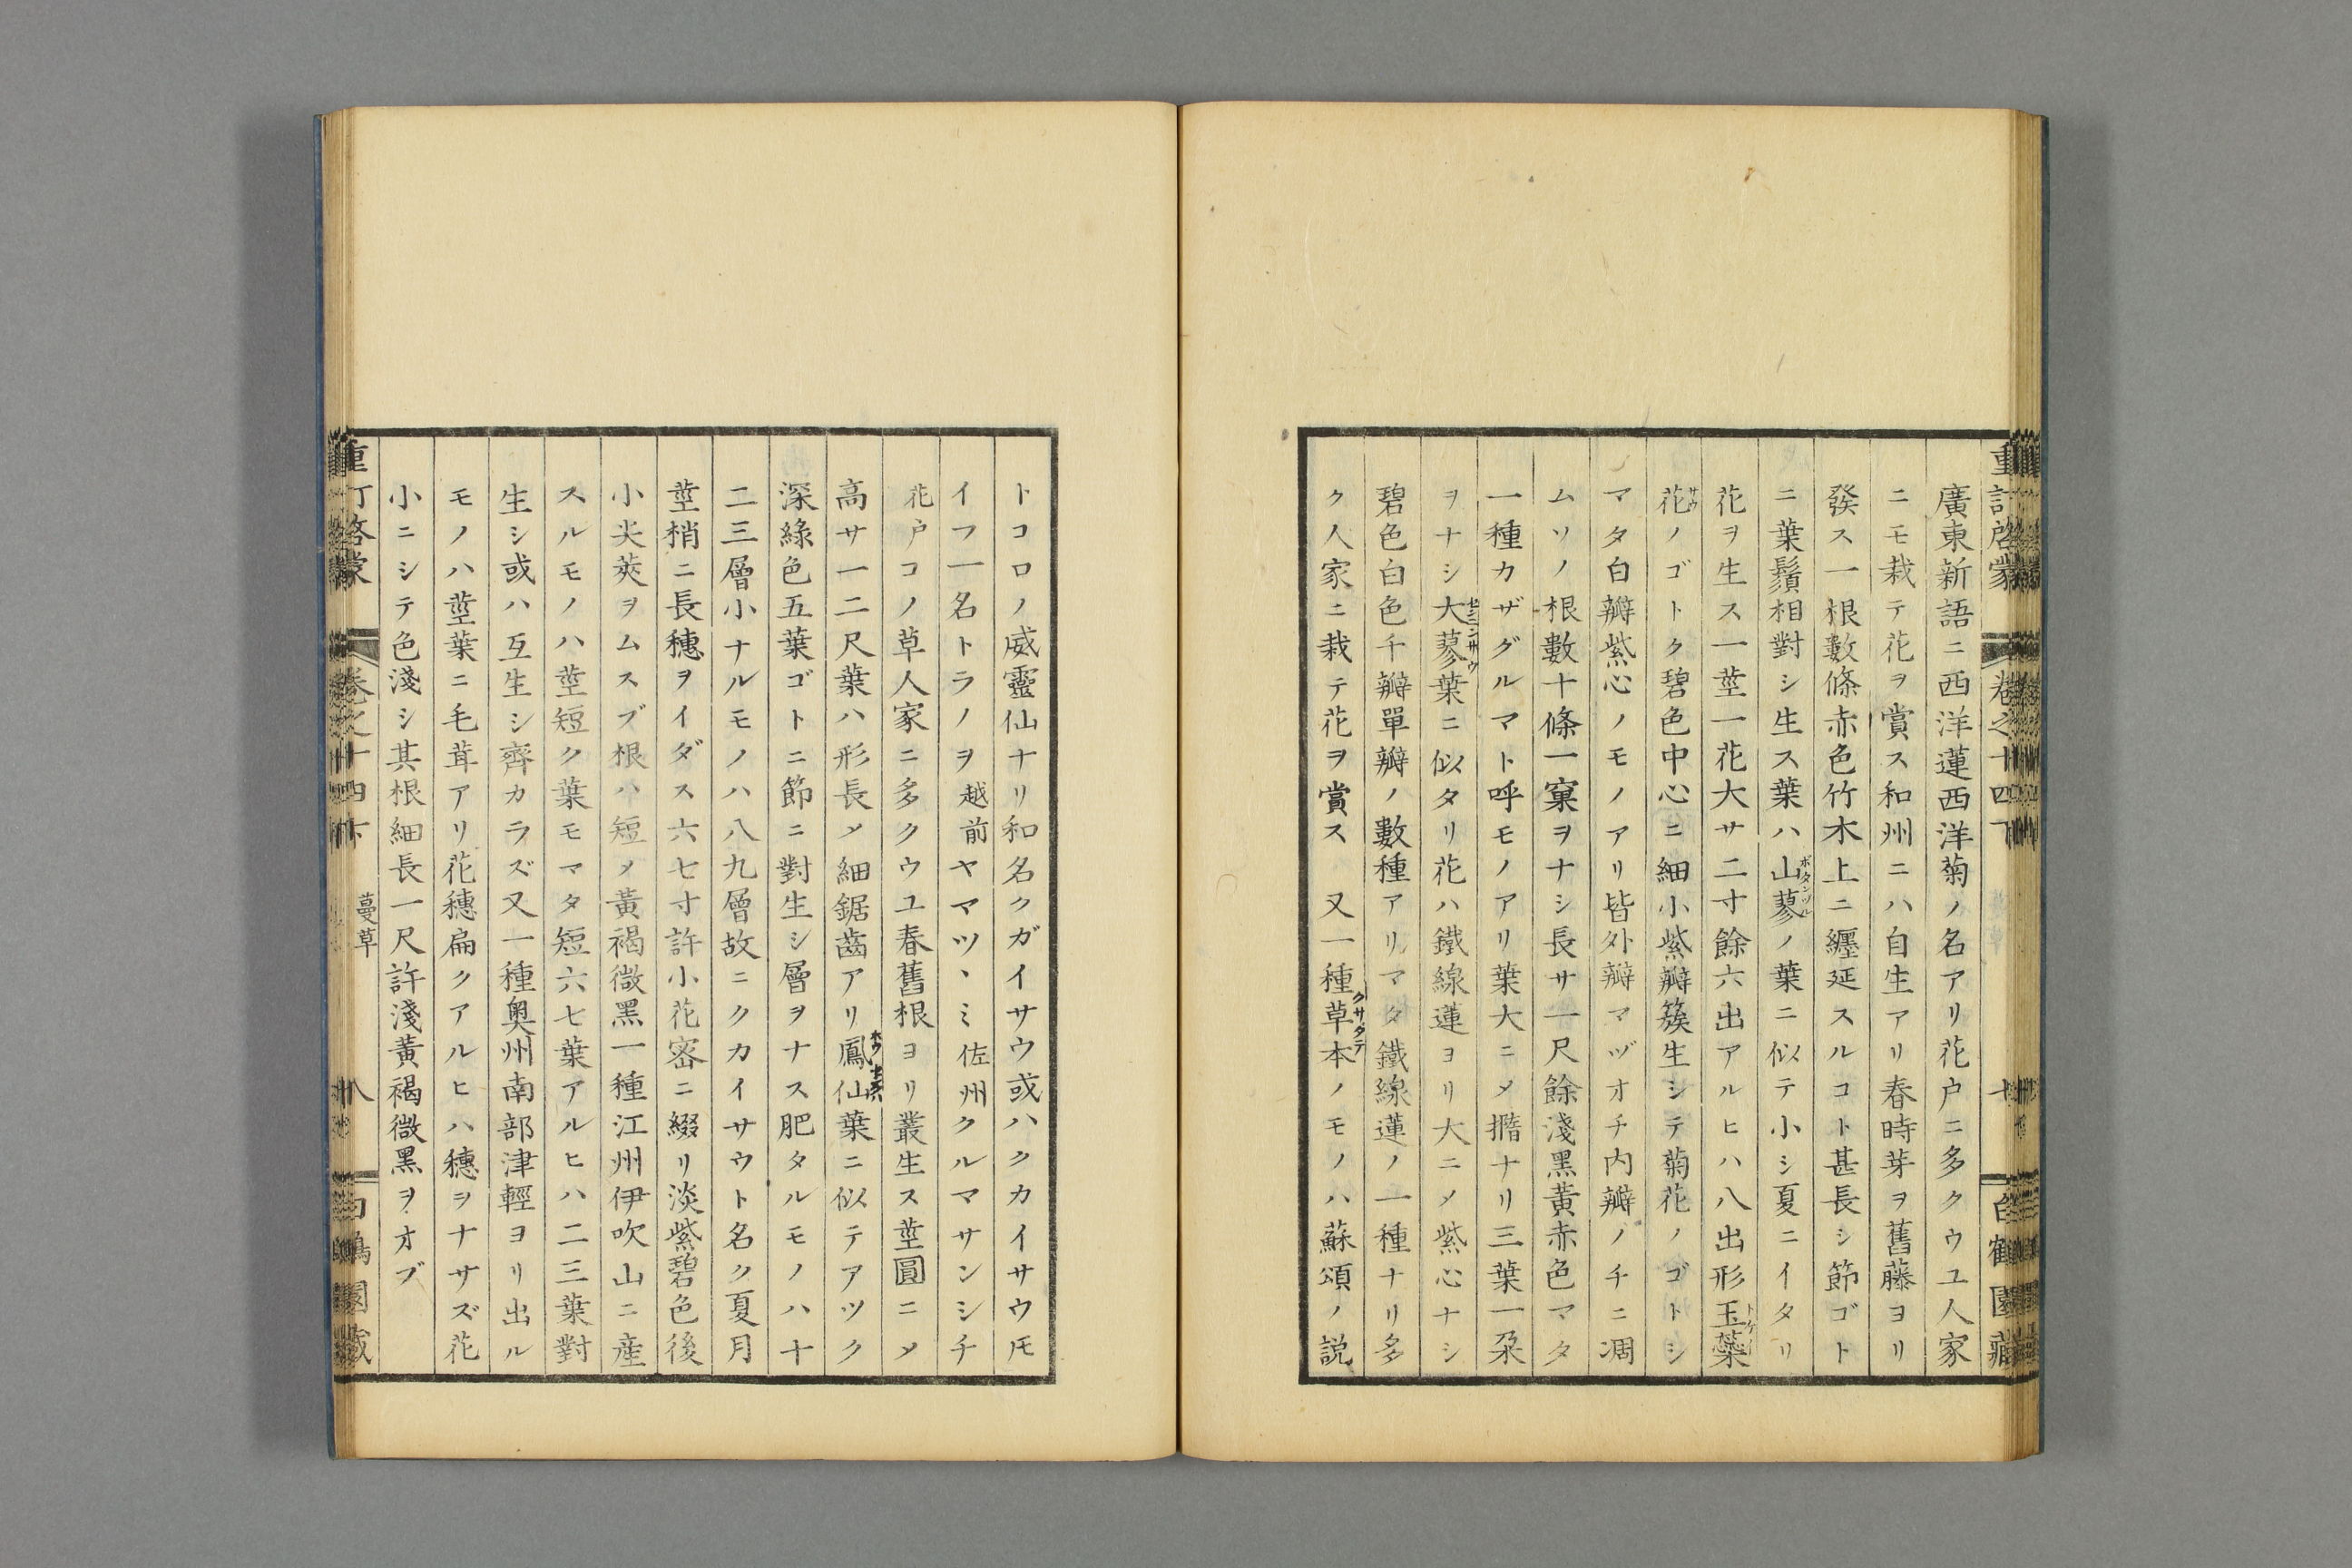 廣東新語ニ西洋蓮西洋菊ノ名アリ花户ニ多クウユ人家
ニモ栽テ花ヲ賞ス和州ニハ自生アリ春時芽ヲ舊藤ヨリ
發ス一根數條赤色竹木上ニ纒延スルコト甚長シ節ゴト
ニ葉鬚相對シ生ス葉ハ山蓼ノ葉ニ似テ小シ夏ニイタリ
ボタンヅル
花ヲ生ス一莖一花大サ二寸餘六出アルヒハ八出形玉蘂
トケイ
花ノゴトク碧色中心ニ細小紫瓣簇生シテ菊花ノゴトシ
サウ
マタ白瓣紫心ノモノアリ皆外瓣マヅオチ内瓣ノチニ凋
ムソノ根數十條一窠ヲナシ長サ一尺餘淺黑黃赤色マタ
一種カザグルマト呼モノアリ葉大ニメ撘ナリ三葉一朶
ヲナシ大蓼葉ニ似タリ花ハ鐵線蓮ヨリ大ニメ紫心ナシ
センニンサウ
碧色白色千瓣單瓣ノ數種アリマタ鐵線蓮ノ一種ナリ多
ク人家ニ栽テ花ヲ賞ス 又一種草本ノモノハ蘇頌ノ説
クサダテ
重訂啓蒙 卷之十四下 七 白鶴園藏
トコロノ威靈仙ナリ和名クガイサウ或ハクカイサウ𪜈
イフ一名トラノヲ越前ヤマツヽミ佐州クルマサンシチ
花户コノ草人家ニ多クウユ春舊根ヨリ叢生ス莖圓ニメ
高サ一二尺葉ハ形長メ細鋸齒アリ鳳仙葉ニ似テアツク
深綠色五葉ゴトニ節ニ對生シ層ヲナス肥タルモノハ十
二三層小ナルモノハ八九層故ニクカイサウト名ク夏月
莖梢ニ長穗ヲイダス六七寸許小花密ニ綴リ淡紫碧色後
小尖莢ヲムスブ根ハ短メ黃褐微黑一種江州伊吹山ニ産
スルモノハ莖短ク葉モマタ短六七葉アルヒハ二三葉對
生シ或ハ互生シ齊カラズ又一種奥州南部津輕ヨリ出ル
モノハ莖葉ニ毛茸アリ花穗扁クアルヒハ穗ヲナサズ花
小ニシテ色淺シ其根細長一尺許淺黃褐微黑ヲオブ
重訂啓蒙 卷之十四下 蔓草 八 白鶴園藏